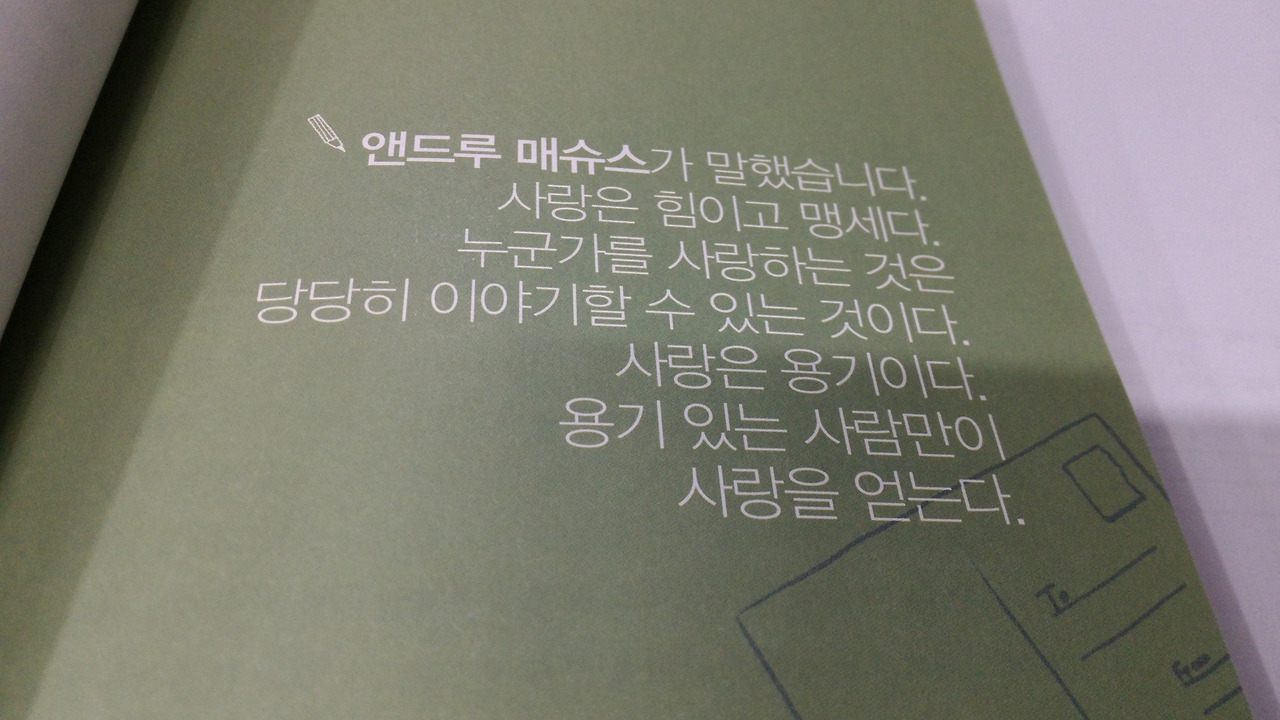 앤드루 매슈스가 말했습니다.
사랑은 힘이고 맹세다.
누군가를 사랑하는 것은
당당히 이야기할 수 있는 것이다.
사랑은 용기이다.
용기 있는 사람만이
사랑을 얻는다.
To
From